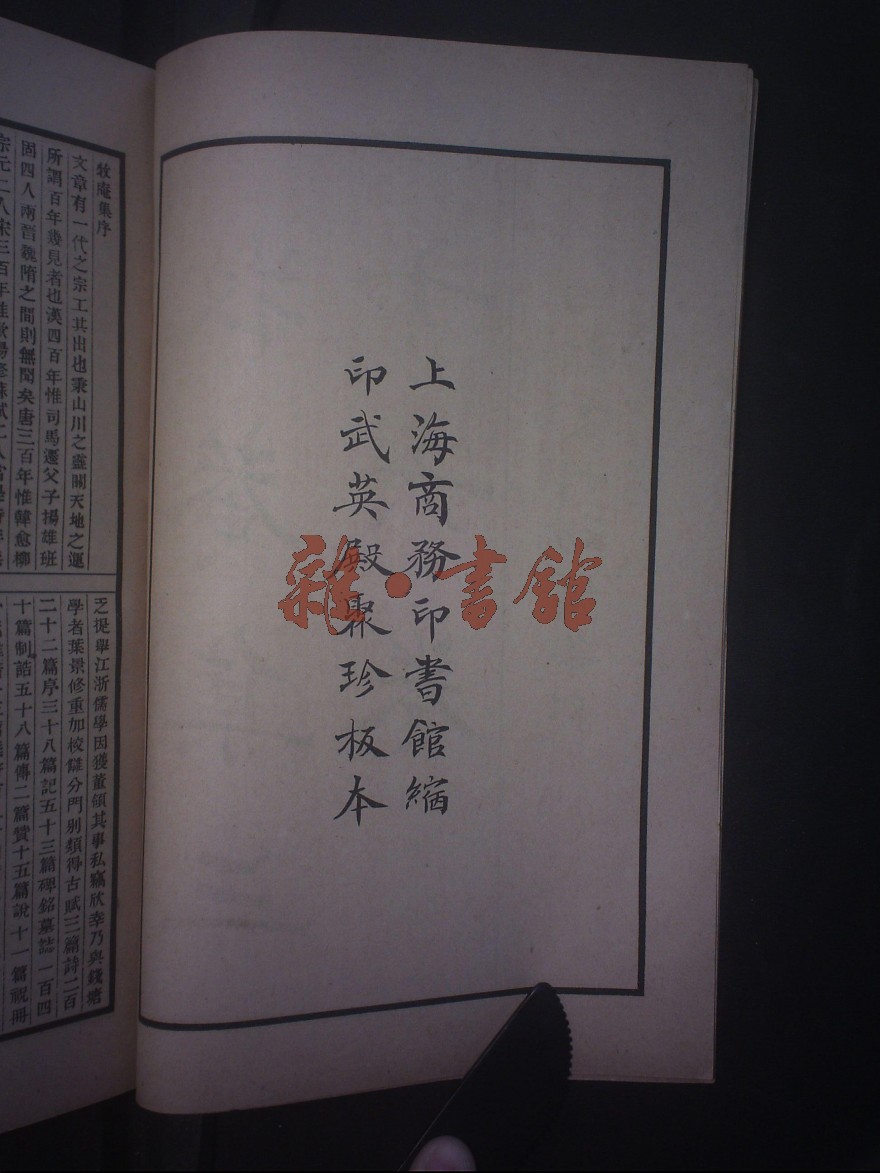 上海商務印書館縮
印武英殿聚珍板本
雜·書館
牧庵集序
文章有一代之宗工其出也秉山川之靈關天地之運
所謂百年幾見者也漢四百年惟司馬遷父子揚雄班
固四人兩晉魏隋之間則無聞矣唐三百年惟韓愈柳
宗元二人宋三百年惟歐陽修蘇軾二人
乏從舉江浙儒學因獲董領其事私竊欣幸乃與錢塘
學者葉景修重加校讎分門別類得古賦三篇詩二百
二十二篇序三十八篇記五十三篇碑銘墓誌一百四
十篇制誥五十八篇傳二篇贊十五篇說十一篇祝冊